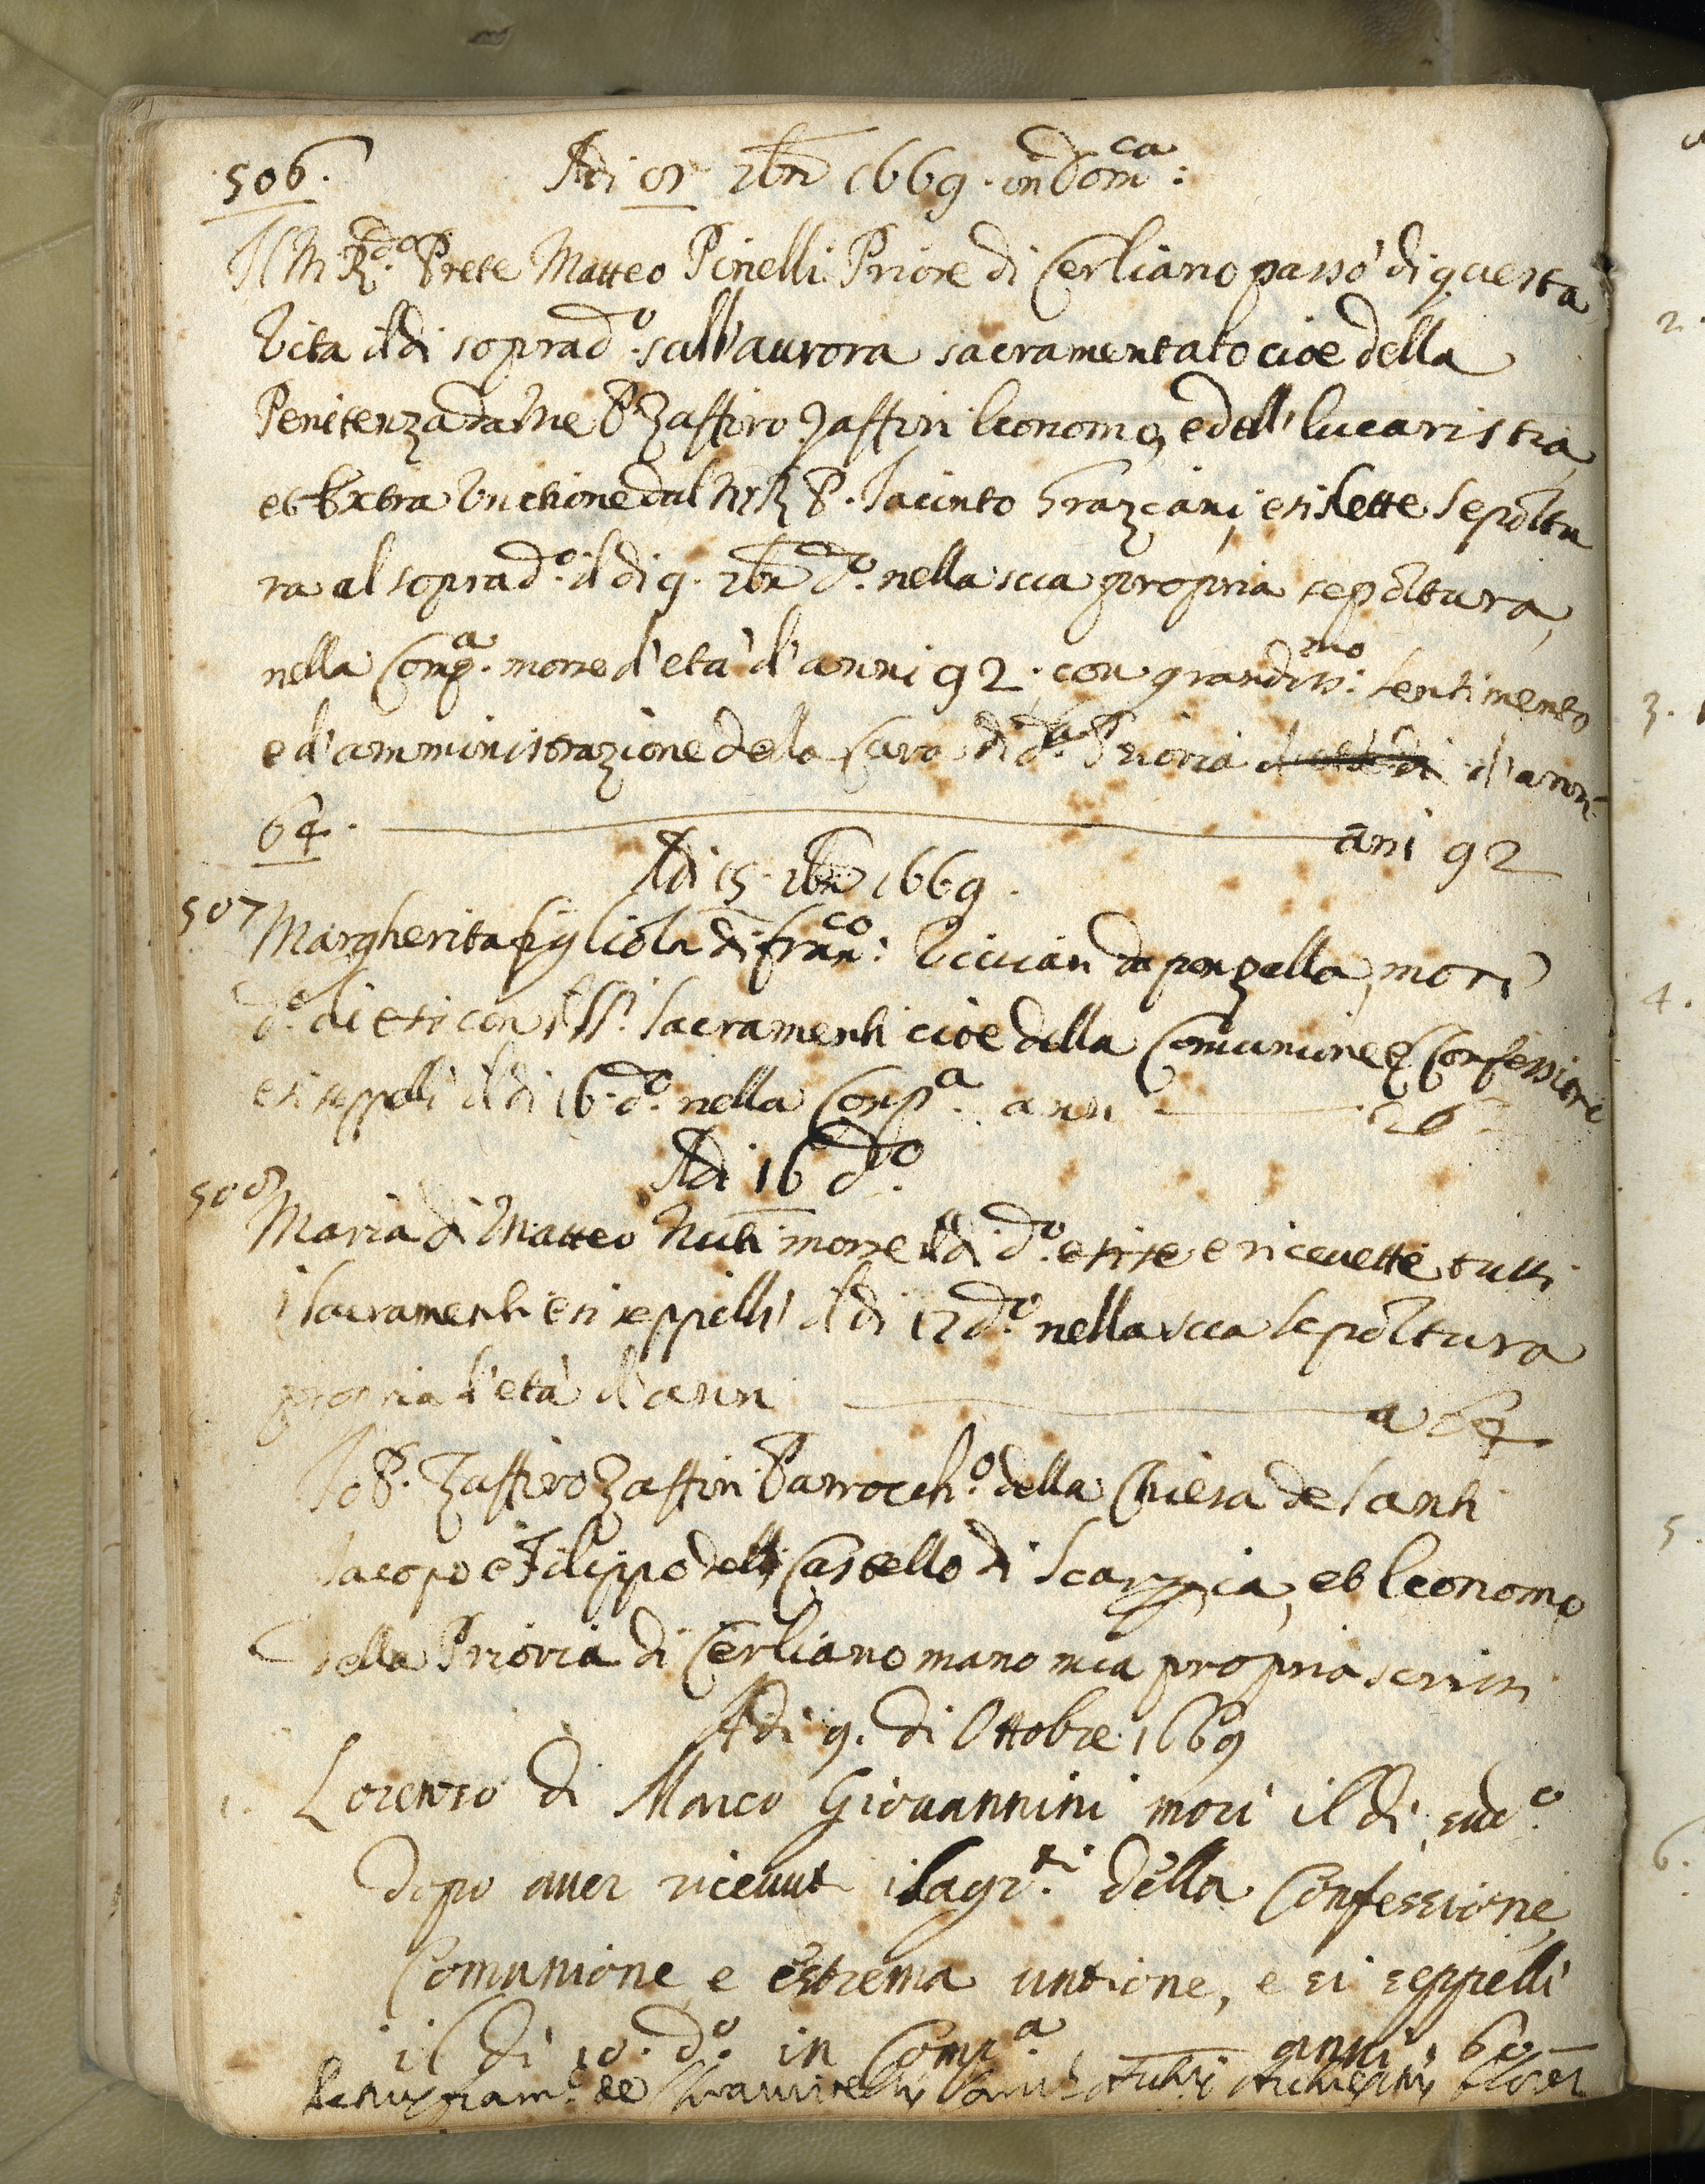 506. Adi 8 7bre 1669. in Domca:
Il M. Rdo. Prete Matteo Pinelli Priore di Cerliano passò di questa
Vita il di soprado. sull'aurora sacramentato cioe della
Penitenza da me P. Zaffiro Zaffiri Economo, e dell' Eucaristia,
et Extra Unctione dal M. R. P. Iacinto Graziani, e si dette sepoltu
ra al soprado. il di 9. 7bre do. nella sua propria sepoltura,
nella Compa. morse d'età d'anni 92. con grandissmo. sentimento
e d'amministrazione dela Cura di da. Prioria d'anni
64. ani 92
Adi 15. 7bre 1669.
507 Margherita figliola di Franco: Viciani da ponzalla, morì
do. di et si con i SSi. Sacramenti cioe della Comunione e Confessione
e si seppelì il di 16. do. nella Compa. ann 26
Adi 16 do.
508 Maria di Matteo Nuti morse il di do. e ricevette tutti
i Sacramenti e si seppellì il di 17 do. nella sua sepoltura
propria d'età d'ann a 64
Io P. Zaffiro Zaffiri Parrocho. della Chiesa de Santi
Iacopo e Filippo dell Castello di Scarperia, et Economo
della Prioria di Cerliano mano mia propria scrissi
Adi 9. di Ottobre 1669
1. Lorenzo di Marco Giovannini morì il dì sudo.
dopo aver ricevut i Sagrti. della Confessione,
Comunione e estrema untione, e si seppellì
il dì 10. do. in Compa. anni 60